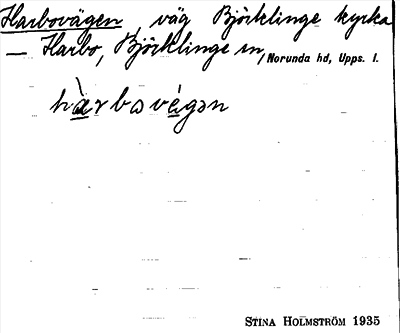 Harbovägen, väg Björklinge kyrka
— Harbo, Björklinge sn, Norunda hd, Upps. l.
hàrbovégən
STINA HOLMSTRÖM 1935